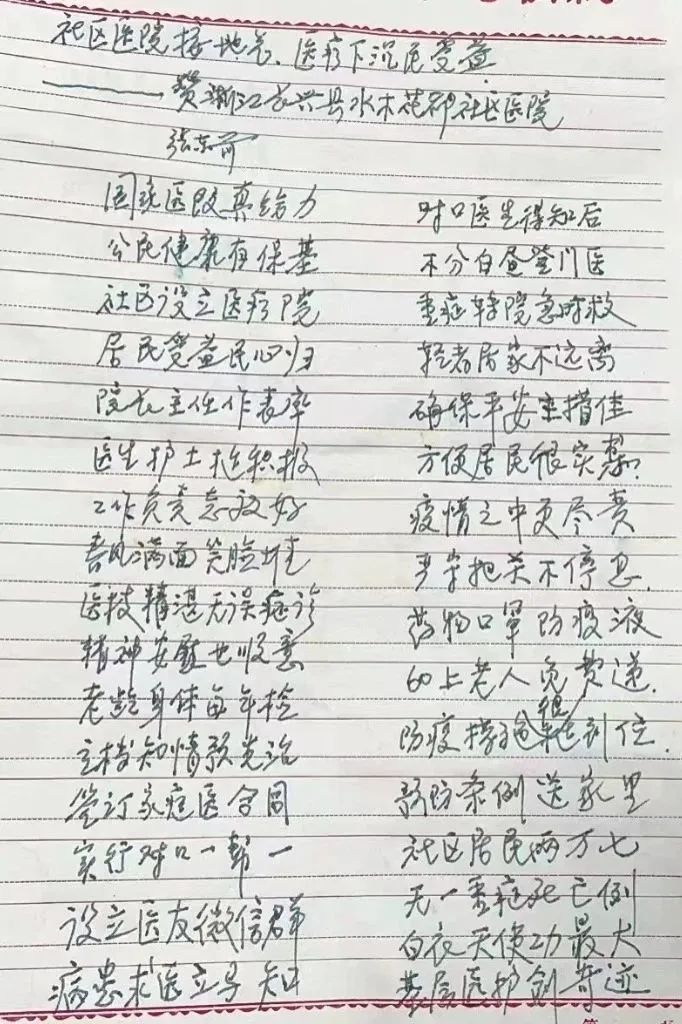 社区医院接地气、医疗下沉民受益
——赞浙江长兴县水木花都社区医院
张东
国家医改真给力
公民健康有保基
社区设立医疗院
居民受益民心归
院长主任作表率
医生护士抢积极
工作负责态度好
春风满面笑脸堆
医技精湛无误症诊
精神安慰也顺意
老龄身体每年检
立档知情预先治
签订家庭医合同
实行对口一帮一
设立医友微信群
病患求医立马知
对口医生得知后
不分白昼登门医
重症转院急时救
轻者居家不远离
确保平安 措佳
方便居民很实
疫情之中更尽责
严守把关不停息.
药物口罩防疫液
60上老人免费递.
防疫措施很到位.
预防条例送家里
社区居民两万七
无一重症死亡例
白衣天使功最大
基层医护创奇迹